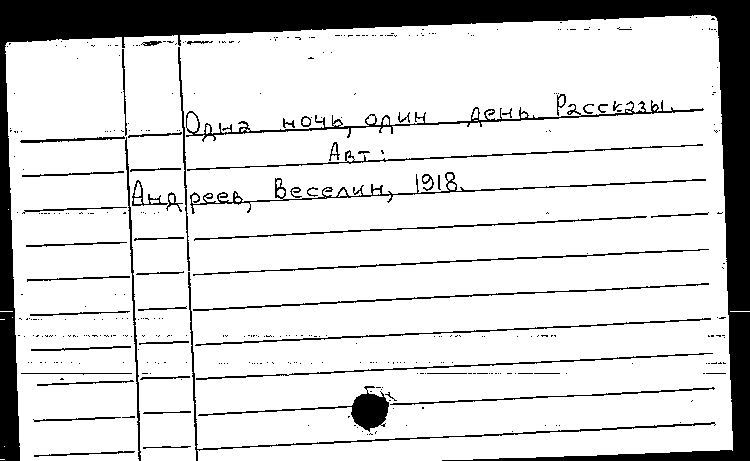 Одна ночь, один день. Рассказы.
Авт:
Андреев, Веселин, 1918.